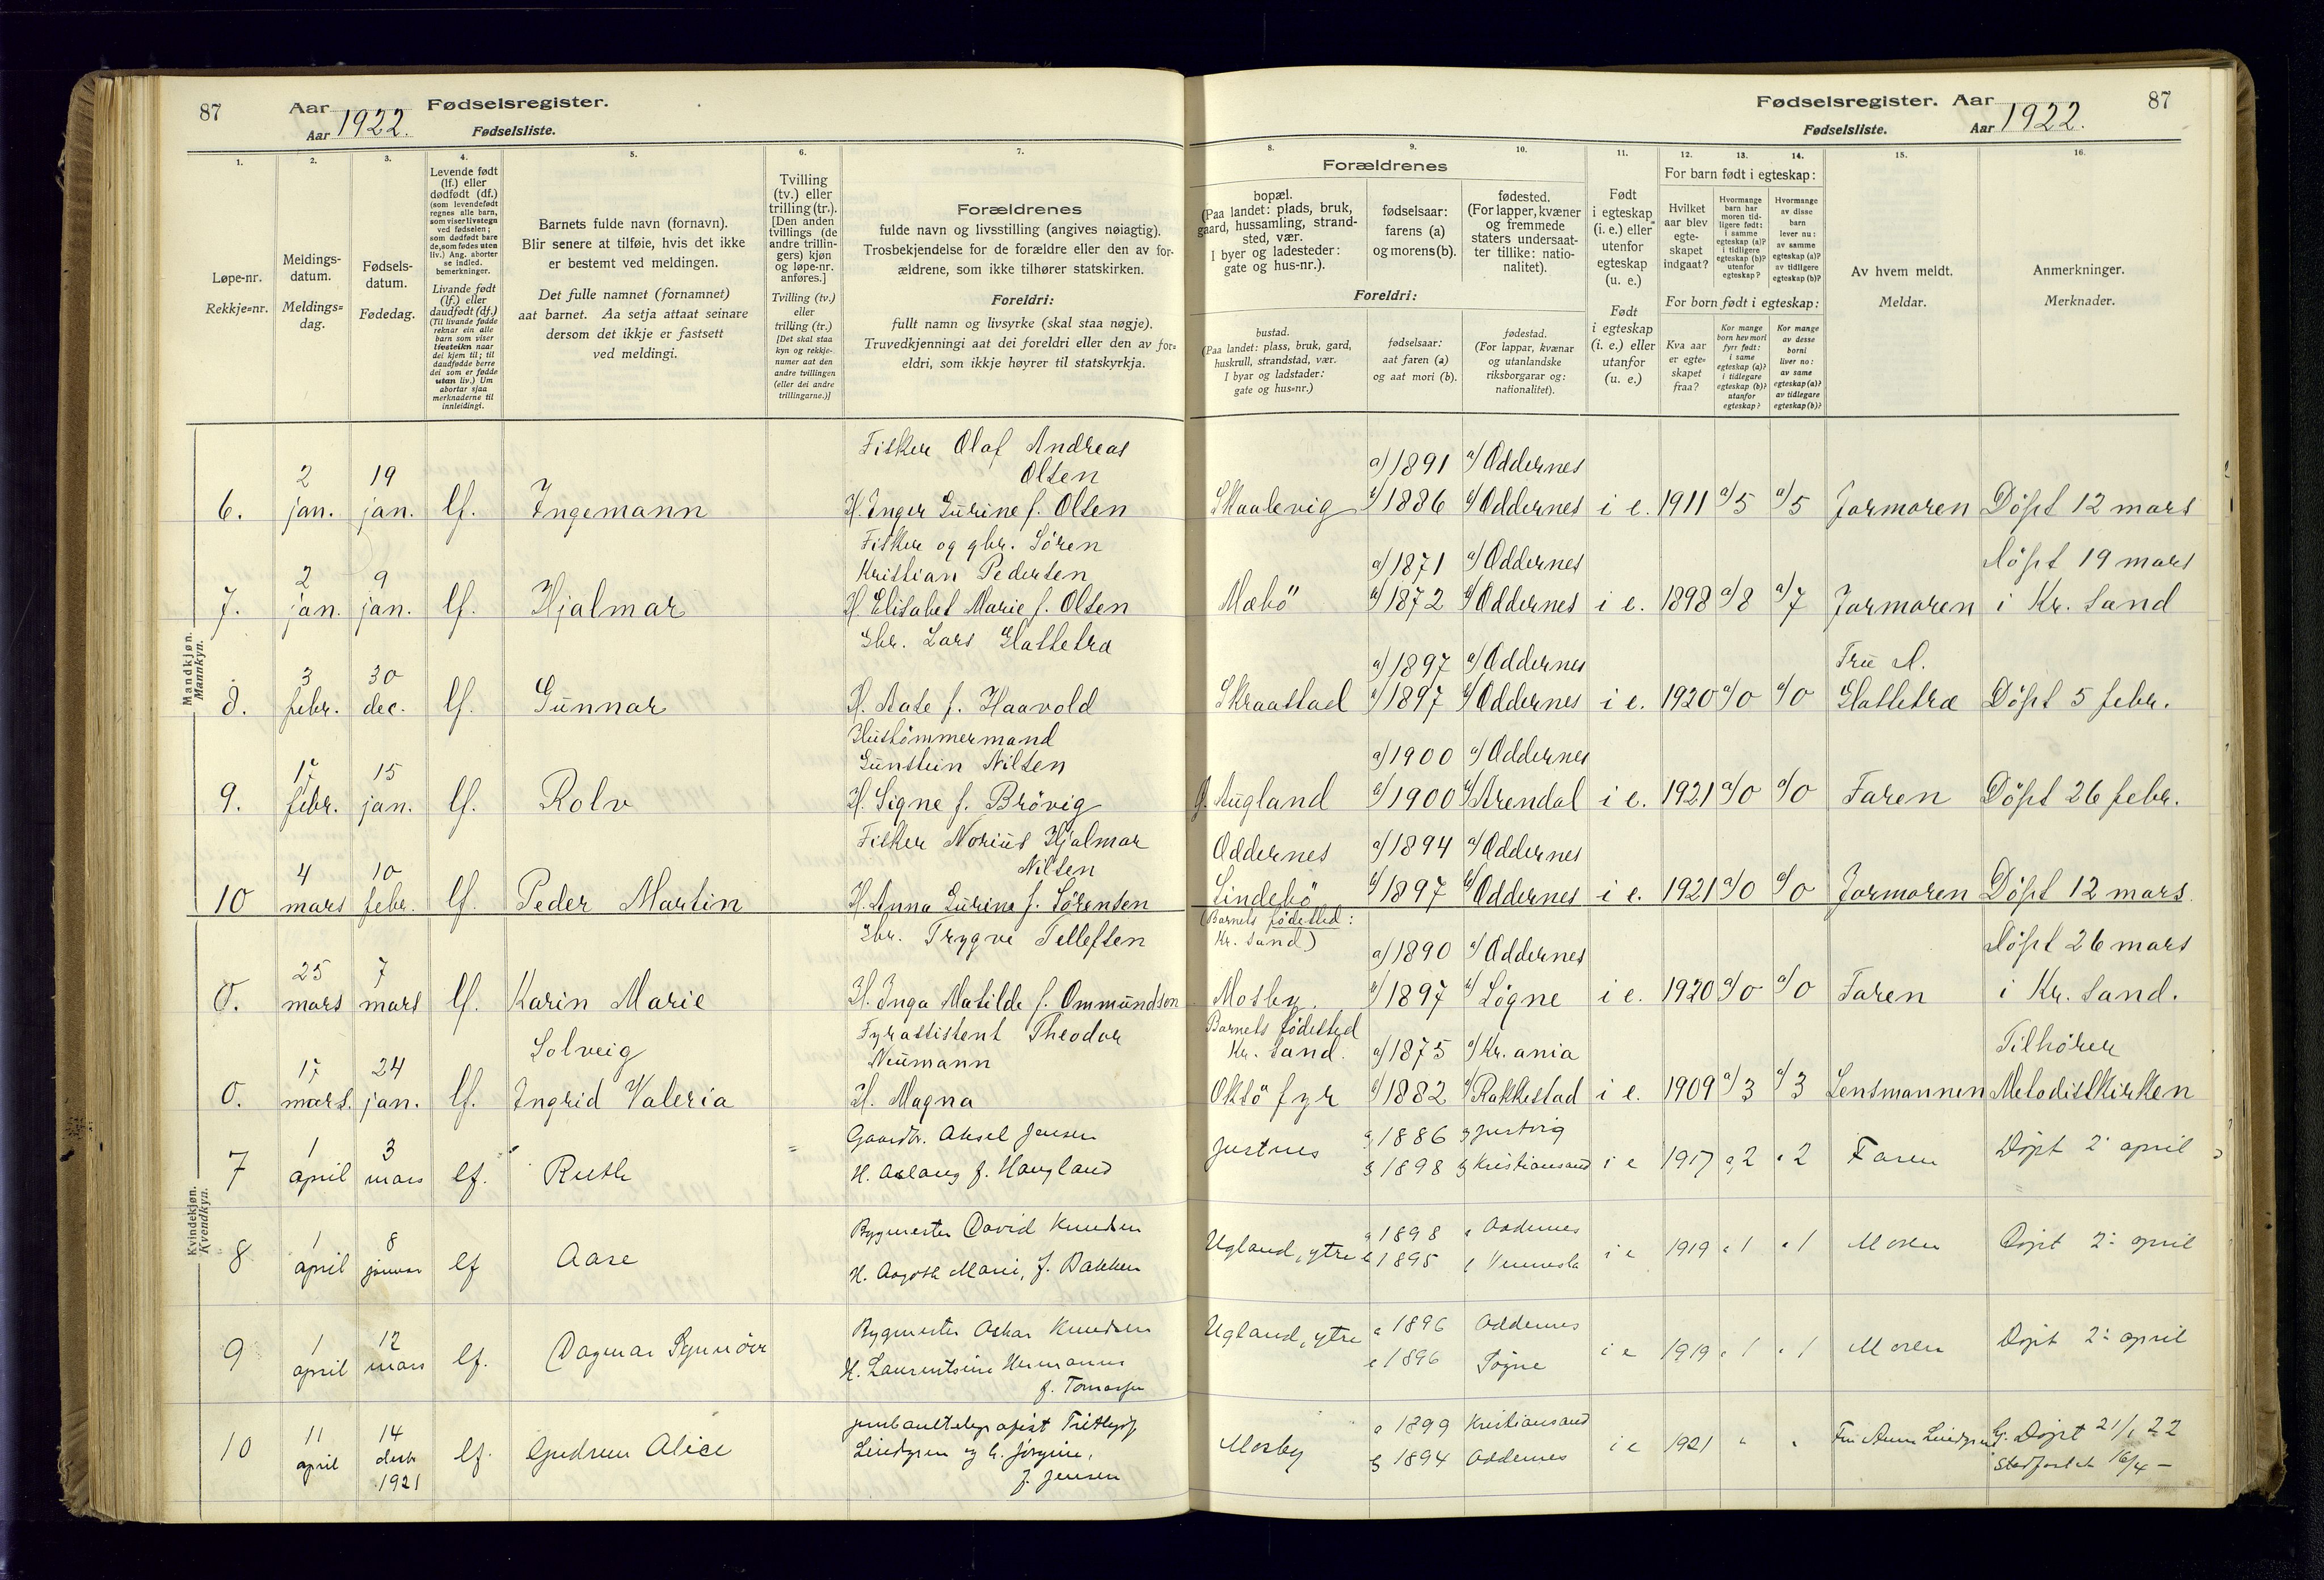 87 Aar 1922. Fødselsregister.
Aar Fødselsliste.
Fødselsregister. Aar 1922. 87
Fødselsliste. Aar
1. 2. 3. 4. 5. 6. 7.
Løpe-nr.
Rekkje=nr.
Meldings-
datum.
Meldings=
dag.
Fødsels-
datum.
Fødedag.
Levende født
(lf.) eller
dødfødt (df.)
(som levendefødt
regnes alle barn,
som viser livstegn
ved fødselen;
som dødfødt bare
de, som fødes uten
liv.) Ang. aborter
se indled.
bemerkninger.
Livande født
(lf.) eller
daudfødt (df.)
(Til livande fødde
reknar ein alle
barn som viser
livsteikn naar
dei kjem til; til
daudfødde berre
dei som er fødde
utan liv.) Um
abortar sjaa
merknaderne til
innleidingi.
Barnets fulde navn (fornavn).
Blir senere at tilføie, hvis det ikke
er bestemt ved meldingen.
Det fulle namnet (fornamnet)
aat barnet. Aa setja attaat seinare
dersom det ikkje er fastsett
ved meldingi.
Tvilling
(tv.) eller
trilling (tr.).
[Den anden
tvillings (de
andre trillin-
gers) kjøn
og løpe-nr.
anføres.]
Tvilling (tv.)
eller
trilling (tr.)
[Det skal staa
kyn og rekkje-
numer aat den
andre tvillingen
(eller dei andre
trillingarne.)]
Forældrenes
fulde navn og livsstilling (angives nøiagtig).
Trosbekjendelse for de forældre eller den av for-
ældrene, som ikke tilhører statskirken.
Foreldri:
fullt namn og livsyrke (skal staa nøgje).
Truvedkjenningi aat dei foreldri eller den av for-
eldri, som ikkje høyrer til statskyrkja.
8. 9. 10. 11. 12. 13. 14. 15. 16.
Forældrenes
bopæl.
(Paa landet: plads, bruk,
gaard, hussamling, strand-
sted, vær.
I byer og ladesteder:
gate og hus-nr.).
fødselsaar:
farens (a)
og morens (b).
fødested.
(For lapper, kvæner
og fremmede
staters undersaat-
ter tillike: natio-
nalitet).
Foreldri:
bustad.
(Paa landet: plass, bruk, gard,
huskrull, strandstad, vær.
I byar og ladstader:
gate og hus=nr.)
fødselsaar:
aat faren (a)
og aat mori (b).
fødestad.
(For lappar, kvænar
og utanlandske
riksborgarar og:
nationalitet).
Født
i egteskap
(i. e.) eller
utenfor
egteskap
(u. e.)
Født
i egteskap
(i. e.) eller
utanfor
(u. e.)
For barn født i egteskap:
Hvilket
aar blev
egte-
skapet
indgaat?
Hvormange
barn har
moren tid-
ligere født:
i samme
egteskap (a)?
i tidligere
egteskap (b)?
utenfor
egteskap?
Hvormange
av disse
barn
lever nu:
av samme
egteskap (a)?
av tidligere
egteskap (b)?
For born født i egteskap:
Kva aar
er egte-
skapet
fraa?
Kor mange
born hev mori
fyrr født:
i same
egteskap (a)?
i tidlegare
egteskap (b)?
utanfor
egteskap?
Kor mange
av desse
borni
liver no:
av same
egteskap (a)?
av tidlegare
egteskap (b)?
Av hvem meldt.
Meldar.
Anmerkninger.
Merknader.
Mandkjøn.
Mannkyn.
Fisker Olaf Andreas
Olsen
6. 2 jan. 19 jan. lf. Ingemann H. Inger Gurine f. Olsen Skaalevig a) 1891 b) 1886 a) Oddernes b) Oddernes i e. 1911 a) 5 a) 5 Jormoren Döpt 12 mars
Fisker og gbr. Sören
Kristian Pedersen
7. 2 jan. 9 jan. lf. Hjalmar H. Elisabet Marie f. Olsen Mæbö a) 1871 b) 1872 a) Oddernes b) Oddernes i e. 1898 a) 8 a) 7 Jormoren Döpt 19 mars i Kr. Sand
Gbr. Lars Glattetræ
8. 3 febr. 30 dec. lf. Gunnar H. Aase f. Haavold Skraastad a) 1897 b) 1897 a) Oddernes b) Oddernes i e. 1920 a) 0 a) 0 Fru A. Glattetræ Döpt 5 febr.
Hustömmermand
Gunstein Nilsen
9. 17 febr. 15 jan. lf. Rolv H. Signe f. Brövig Augland a) 1900 b) 1900 a) Oddernes b) Arendal i e. 1921 a) 0 a) 0 Faren Döpt 26 febr.
Fisker Norius Hjalmar
Nilsen
10 4 mars 10 febr. lf. Peder Martin H. Anna Gurine f. Sörensen Oddernes Lindebö a) 1894 b) 1897 a) Oddernes b) Oddernes i e. 1921 a) 0 a) 0 Jormoren Döpt 12 mars.
Kvindekjøn.
Kvendkyn.
Gbr. Trygve Tellefsen
(Barnets födested:
Kr. Sand)
0. 25 mars 7 mars lf. Karin Marie H. Inga Matilde f. Ommundsen Mosby. a) 1890 b) 1897 a) Oddernes b) Sögne i e. 1920 a) 0 a) 0 Faren Döpt 26 mars i Kr. Sand.
Fyrassistent Theodor
Neumann
Barnets födested
Kr. Sand.
0. 17 mars. 24 jan. lf. Solveig Ingrid Valeria H. Magna Oksö fyr a) 1875 b) 1882 a) Kr.ania b) Rakkestad i e. 1909 a) 3 a) 3 Lensmannen Tilhörer Metodistkirken
Gaardbr. Aksel Jensen
7 1 april 3 mars lf. Ruth H. Aslaug f. Haugland Justnes a 1886 b 1898 a Justvig b Kristiansand i e 1917 a 2 a 2 Faren Döpt 2 april
Bygmester David Knudsen
8 1 april 8 januar lf Aase H. Aagoth Marie, f. Bakken Ugland, ytre a 1898 b 1895 a Oddernes b Vennesla i e 1919 a 1 a 1 Moren Döpt 2 april
Bygmester Oskar Knudsen
9 1 april 12 mars lf. Dagmar Synnöve H. Laurentsine Hermanne f. Tomassen Ugland, ytre a 1896 b 1896 Oddernes Sögne i e 1919 a 1 a 1 Moren Döpt 2 april
10 11 april 14 desbr 1921 lf. Gudrun Alice Lindgren og h. Jörgine, f. Jensen Mosby a 1899 b 1894 Kristiansand Oddernes i e 1921 " " Fru Anna Lindgren Döpt 21/1 22
16/4 —